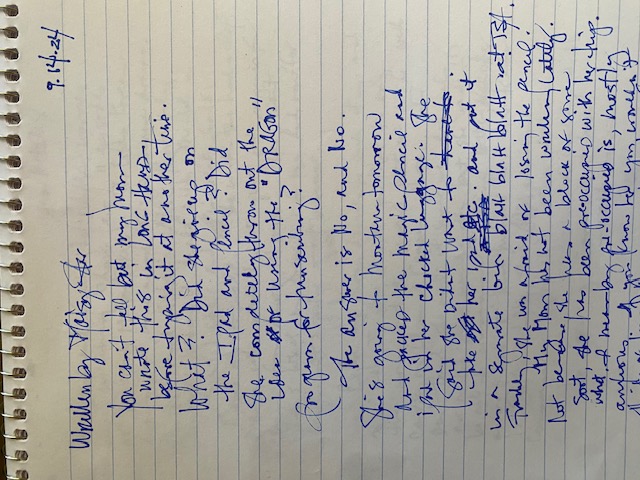 9.14.24
Written by Maisy
You can't tell but my mom
wrote this in LONG HAND
before typing it at another time.
What? Did she give up on
the IPad and Pencil? Did
she completely throw out the
idea of using the "DRAGON"
program for transcribing?
The answer is No, and No.
She's going to Montin tomorrow
And packed the magic pencil and
IPad in her checked luggage. She
said she didn't want to
take her IPad etc. and put it
in a separate bin blah blah blah at TSA.
Frankly, she was afraid of losing the pencil.
My Mom has not been working lately.
Not because she has a block of some
sort, she has been preoccupied with her hip.
What I mean by pre-occupied is, mostly
anxious. If you know